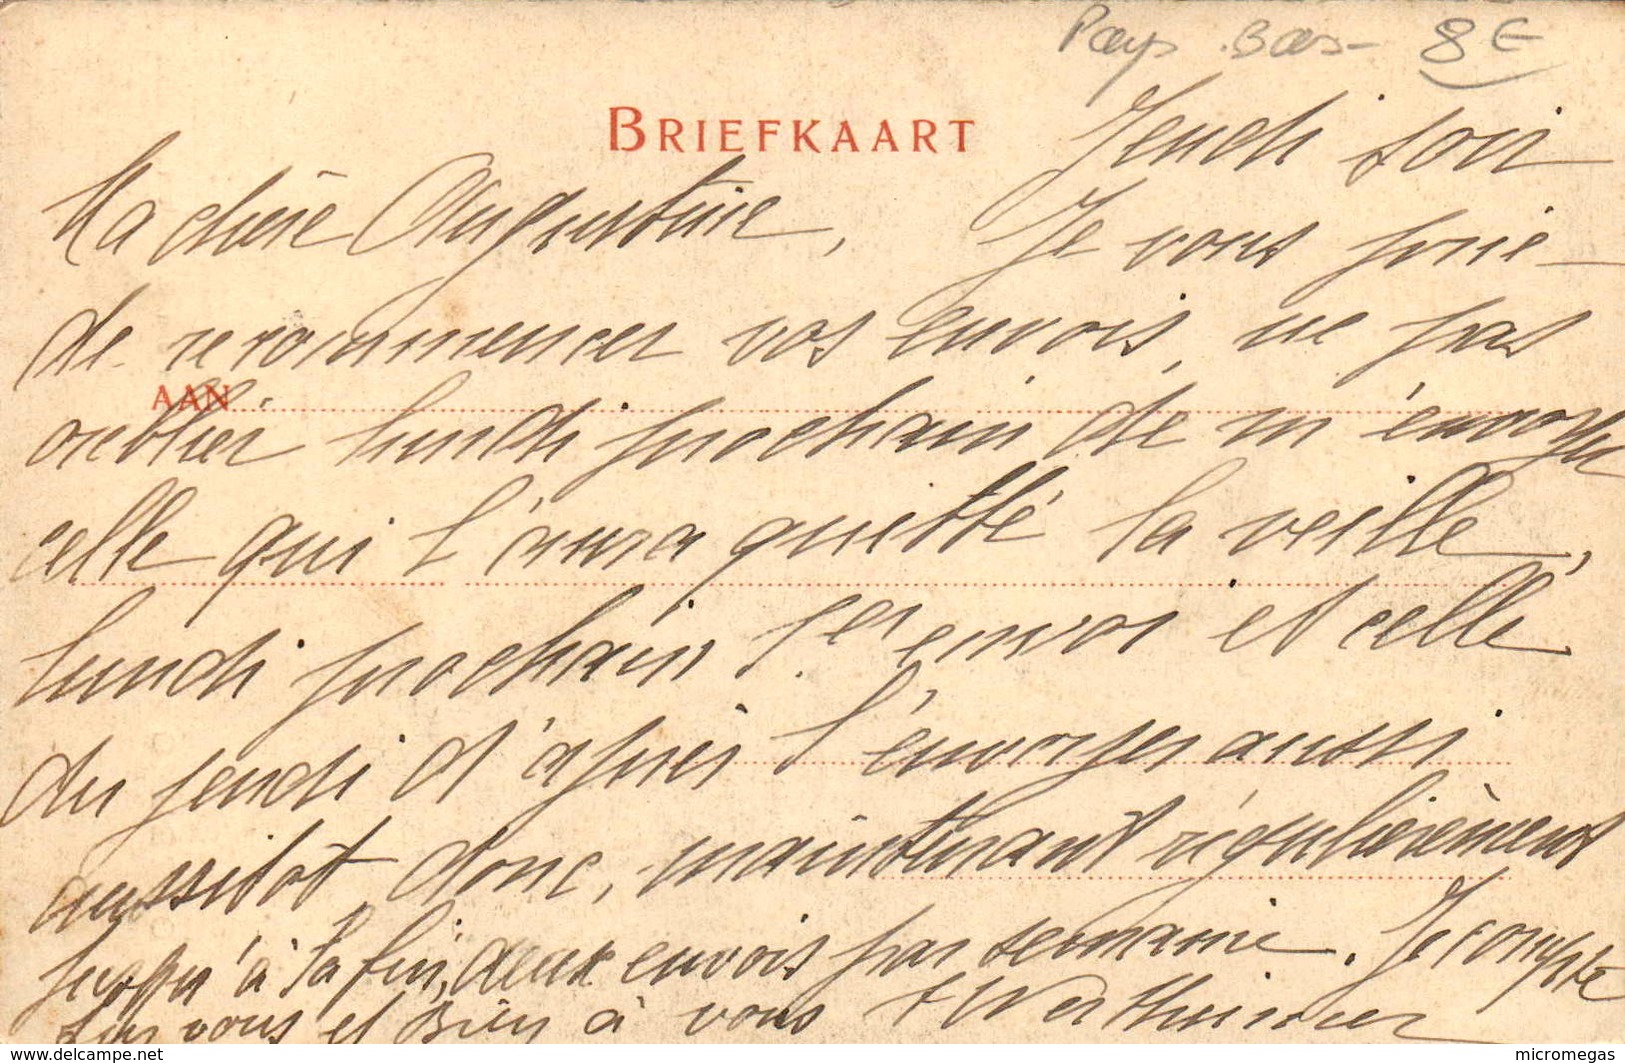 Pays Bas - 8 €
BRIEFKAART
Jeudi soir
Ma chère Augustine, Je vous prie
de recommencer vos envois, ne pas
AAN
oublier lundi prochain de m'envoyer
celle qui l'aura quitté la veille,
lundi prochain 1er envoi et celle
du jeudi d'après l'envoyer aussi
aussitot donc, maintenant régulièrement
jusqu'à la fin, deux envois par semaine. Je compte
sur vous et bien à vous Wertheimer
delcampe.net
micromegas